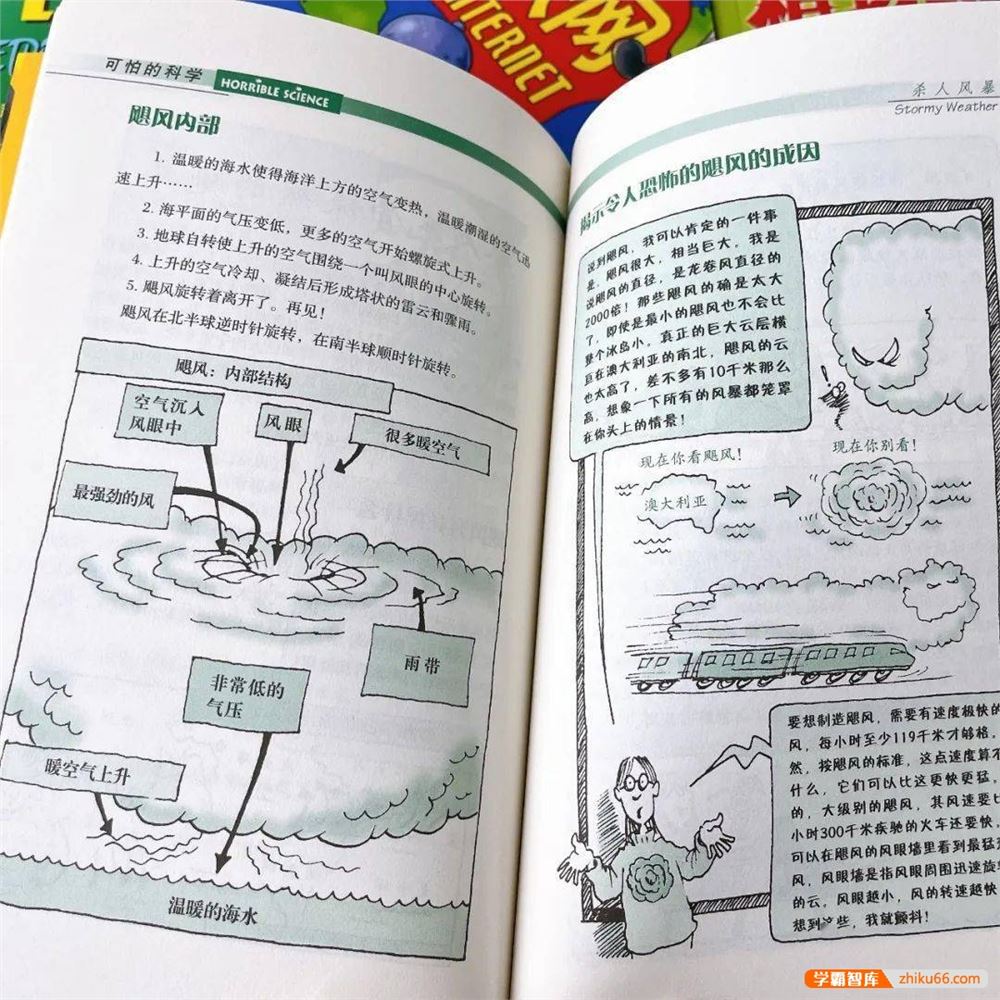 INTERNET
网
可怕的科学
HORRIBLE SCIENCE
飓风内部
1. 温暖的海水使得海洋上方的空气变热，温暖潮湿的空气迅
速上升……
2. 海平面的气压变低，更多的空气开始螺旋式上升。
3. 地球自转使上升的空气围绕一个叫风眼的中心旋转。
4. 上升的空气冷却、凝结后形成塔状的雷云和骤雨。
5. 飓风旋转着离开了。再见！
飓风在北半球逆时针旋转，在南半球顺时针旋转。
飓风：内部结构
空气沉入
风眼中
风眼
很多暖空气
最强劲的风
雨带
非常低的
气压
暖空气上升
温暖的海水
杀人风暴
Stormy Weather
揭示令人恐怖的飓风的成因
说到飓风，我可以肯定的一件事
是，飓风很大，相当巨大，我是
说飓风的直径，是龙卷风直径的
2000倍！那些飓风的确是太大
了，即使是最小的飓风也不会比
整个冰岛小，真正的巨大云层横
亘在澳大利亚的南北，飓风的云
也太高了，差不多有10千米那么
高，想象一下所有的风暴都笼罩
在你头上的情景！
现在你看飓风！
现在你别看！
澳大利亚
要想制造飓风，需要有速度极快的
风，每小时至少119千米才够格，
然，按飓风的标准，这点速度算不
什么，它们可以比这更快更猛，
的，大级别的飓风，其风速要比
小时300千米疾驰的火车还要快，
可以在飓风的风眼墙里看到最猛
风，风眼墙是指风眼周围迅速旋转
的云，风眼越小，风的转速越快
想到这些，我就颤抖！
学霸智库
zhiku66.com